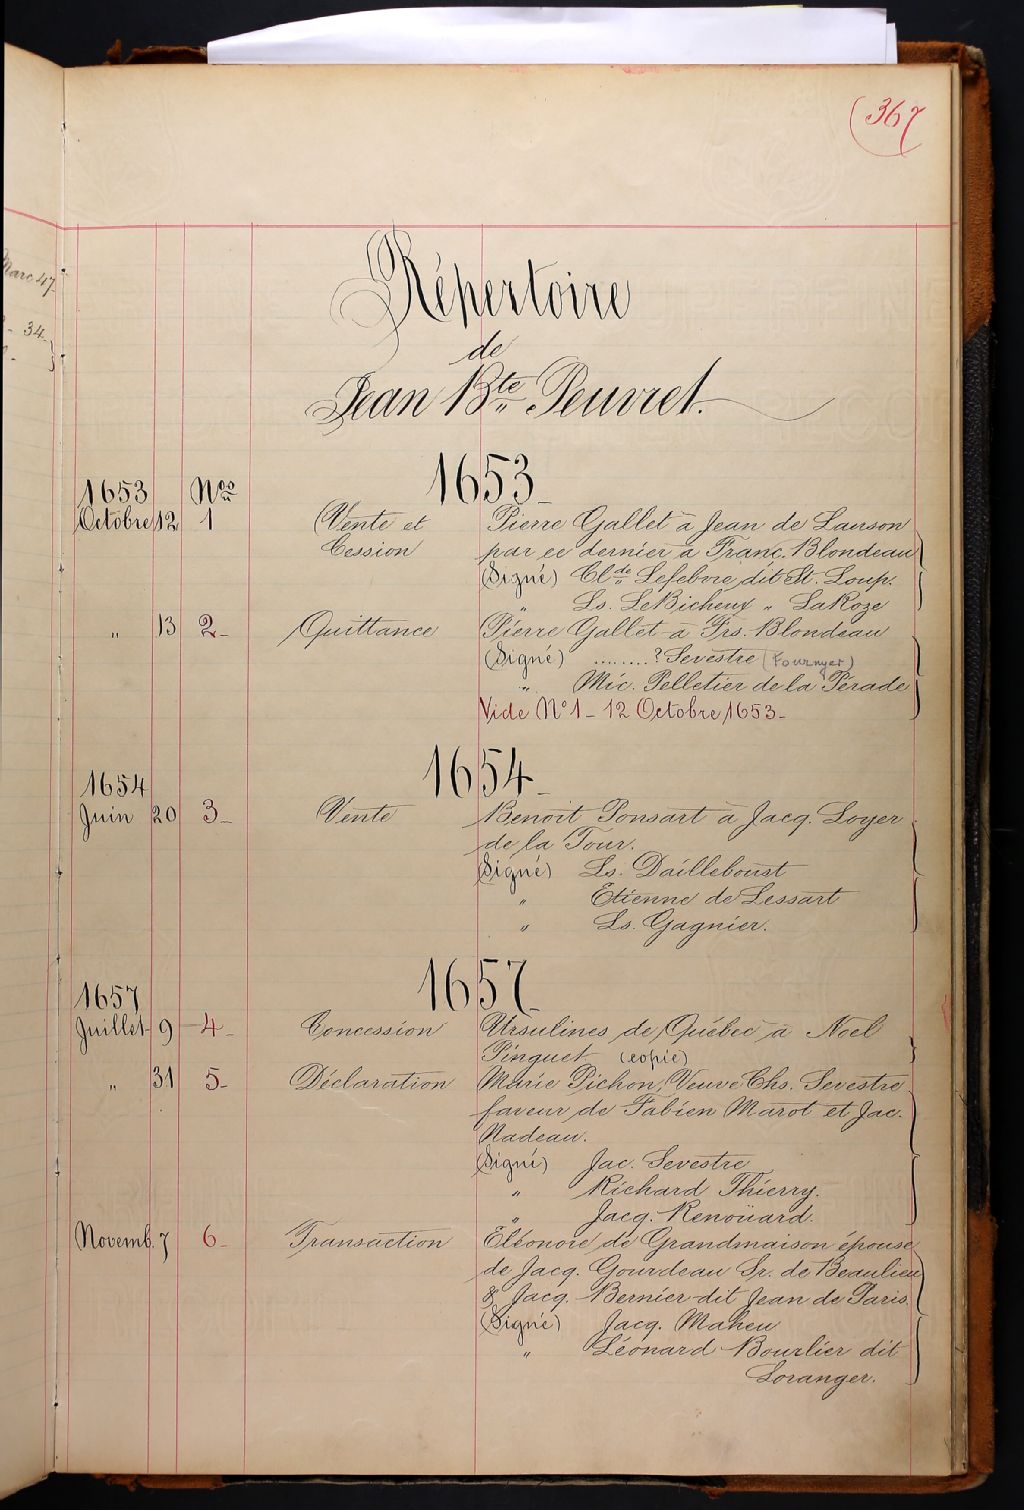 (367
Marc 47.
34
Répertoire
de
Jean Bte Peuvret.
1653
1653 Nos
Octobre 12 1 Vente et Pierre Gallet à Jean de Lauson
Cession par ce dernier à Franc. Blondeau
(Signé) Clde Lefebvre dit St. Loup.
" Ls. LeBicheux " LaRoze
" 13 2 Quittance Pierre Gallet à Frs. Blondeau
(Signé) ........? Sevestre (Fournyer)
" Mic. Pelletier de la Pérade
Vide No 1 - 12 Octobre 1653 -
1654
1654
Juin 20 3 Vente Benoit Ponsart à Jacq. Loyer
de la Tour.
(Signé) Ls. Dailleboust
" Etienne de Lessart
" Ls. Gagnier.
1657
1657
Juillet 9 4 Concession Ursulines de Québec à Noel
Pinguet (copie)
" 31 5 Déclaration Marie Pichon, Veuve Chs. Sevestre
faveur de Fabien Marot et Jac.
Nadeau.
(Signé) Jac. Sevestre
" Richard Thierry.
" Jacq. Renoüard.
Novemb. 7 6 Transaction Eléonore de Grandmaison épouse
de Jacq. Gourdeau Sr. de Beaulieu
& Jacq. Bernier dit Jean de Paris
(Signé) Jacq. Maheu
" Léonard Bourlier dit
Loranger.